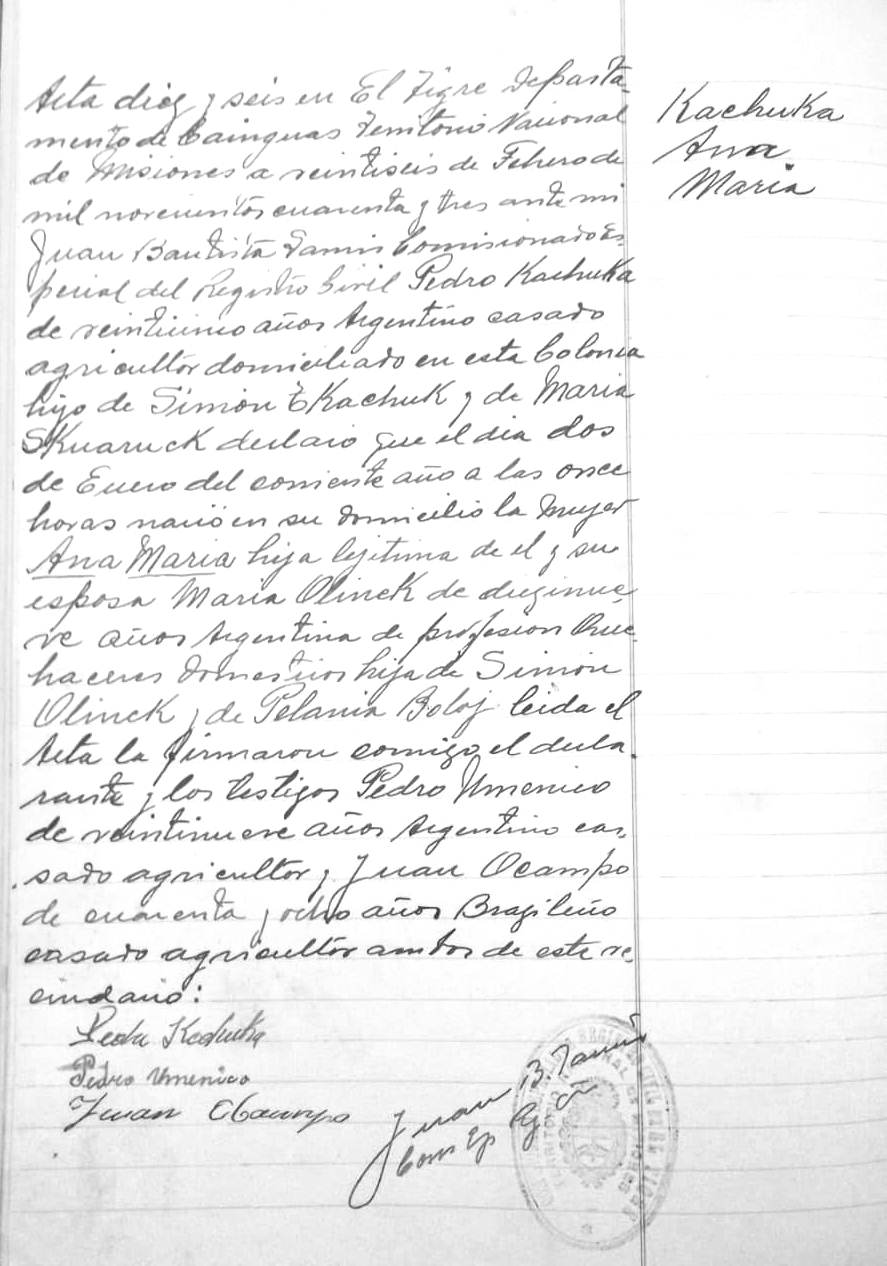 Acta diez y seis en El Tigre Departa-
mento de Cainguas Territorio Nacional
de Misiones a veintiseis de Febrero de
mil novecientos cuarenta y tres ante mi
Juan Bautista Comisionado Es-
pecial del Registro Civil Pedro Kachuka
de veinticinco años Argentino casado
agricultor domiciliado en esta Colonia
hijo de Simón EKachuk y de Maria
SKuaruck declaro que el dia dos
de Enero del corriente año a las once
horas nació en su domicilio la Mujer
Ana Maria hija lejitima de el y su
esposa Maria Olinek de diezinue-
ve años Argentina de profesion Que-
haceres Domesticos hija de Simón
Olineck y de Pelania Boloj leida el
Acta la firmaron comigo el decla-
rante y los testigos Pedro Umenico
de veintinueve años Argentino ca-
sado agricultor y Juan Ocampo
de cuarenta y ocho años Brazileño
casado agricultor ambos de este ve-
cindario:
Kachuka
Ana
Maria
Pedro Kachuka
Pedro Umenico
Juan Ocampo
Juan B.
Com Esp Rg Ci